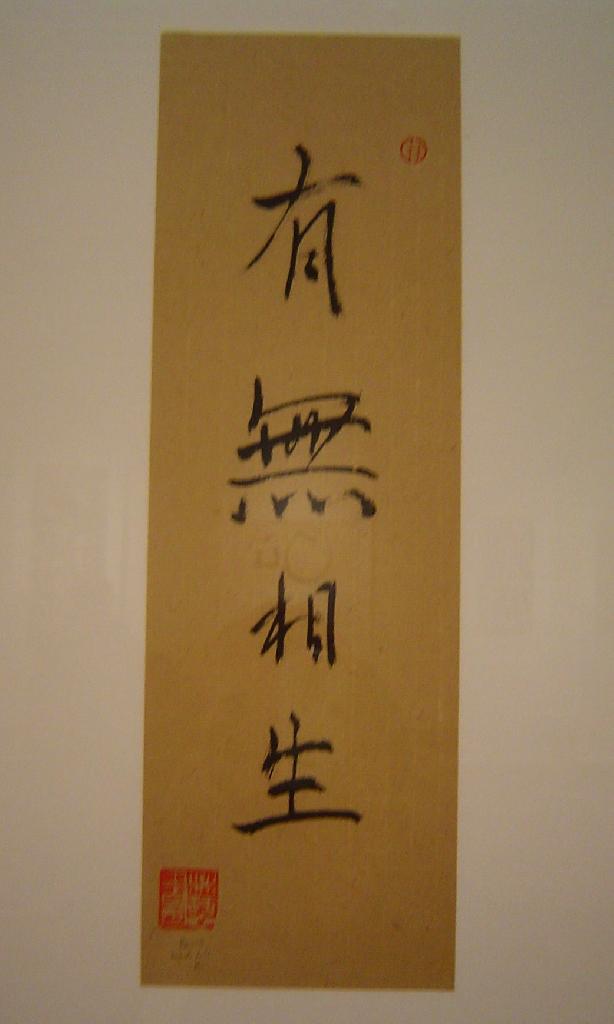 有無相生